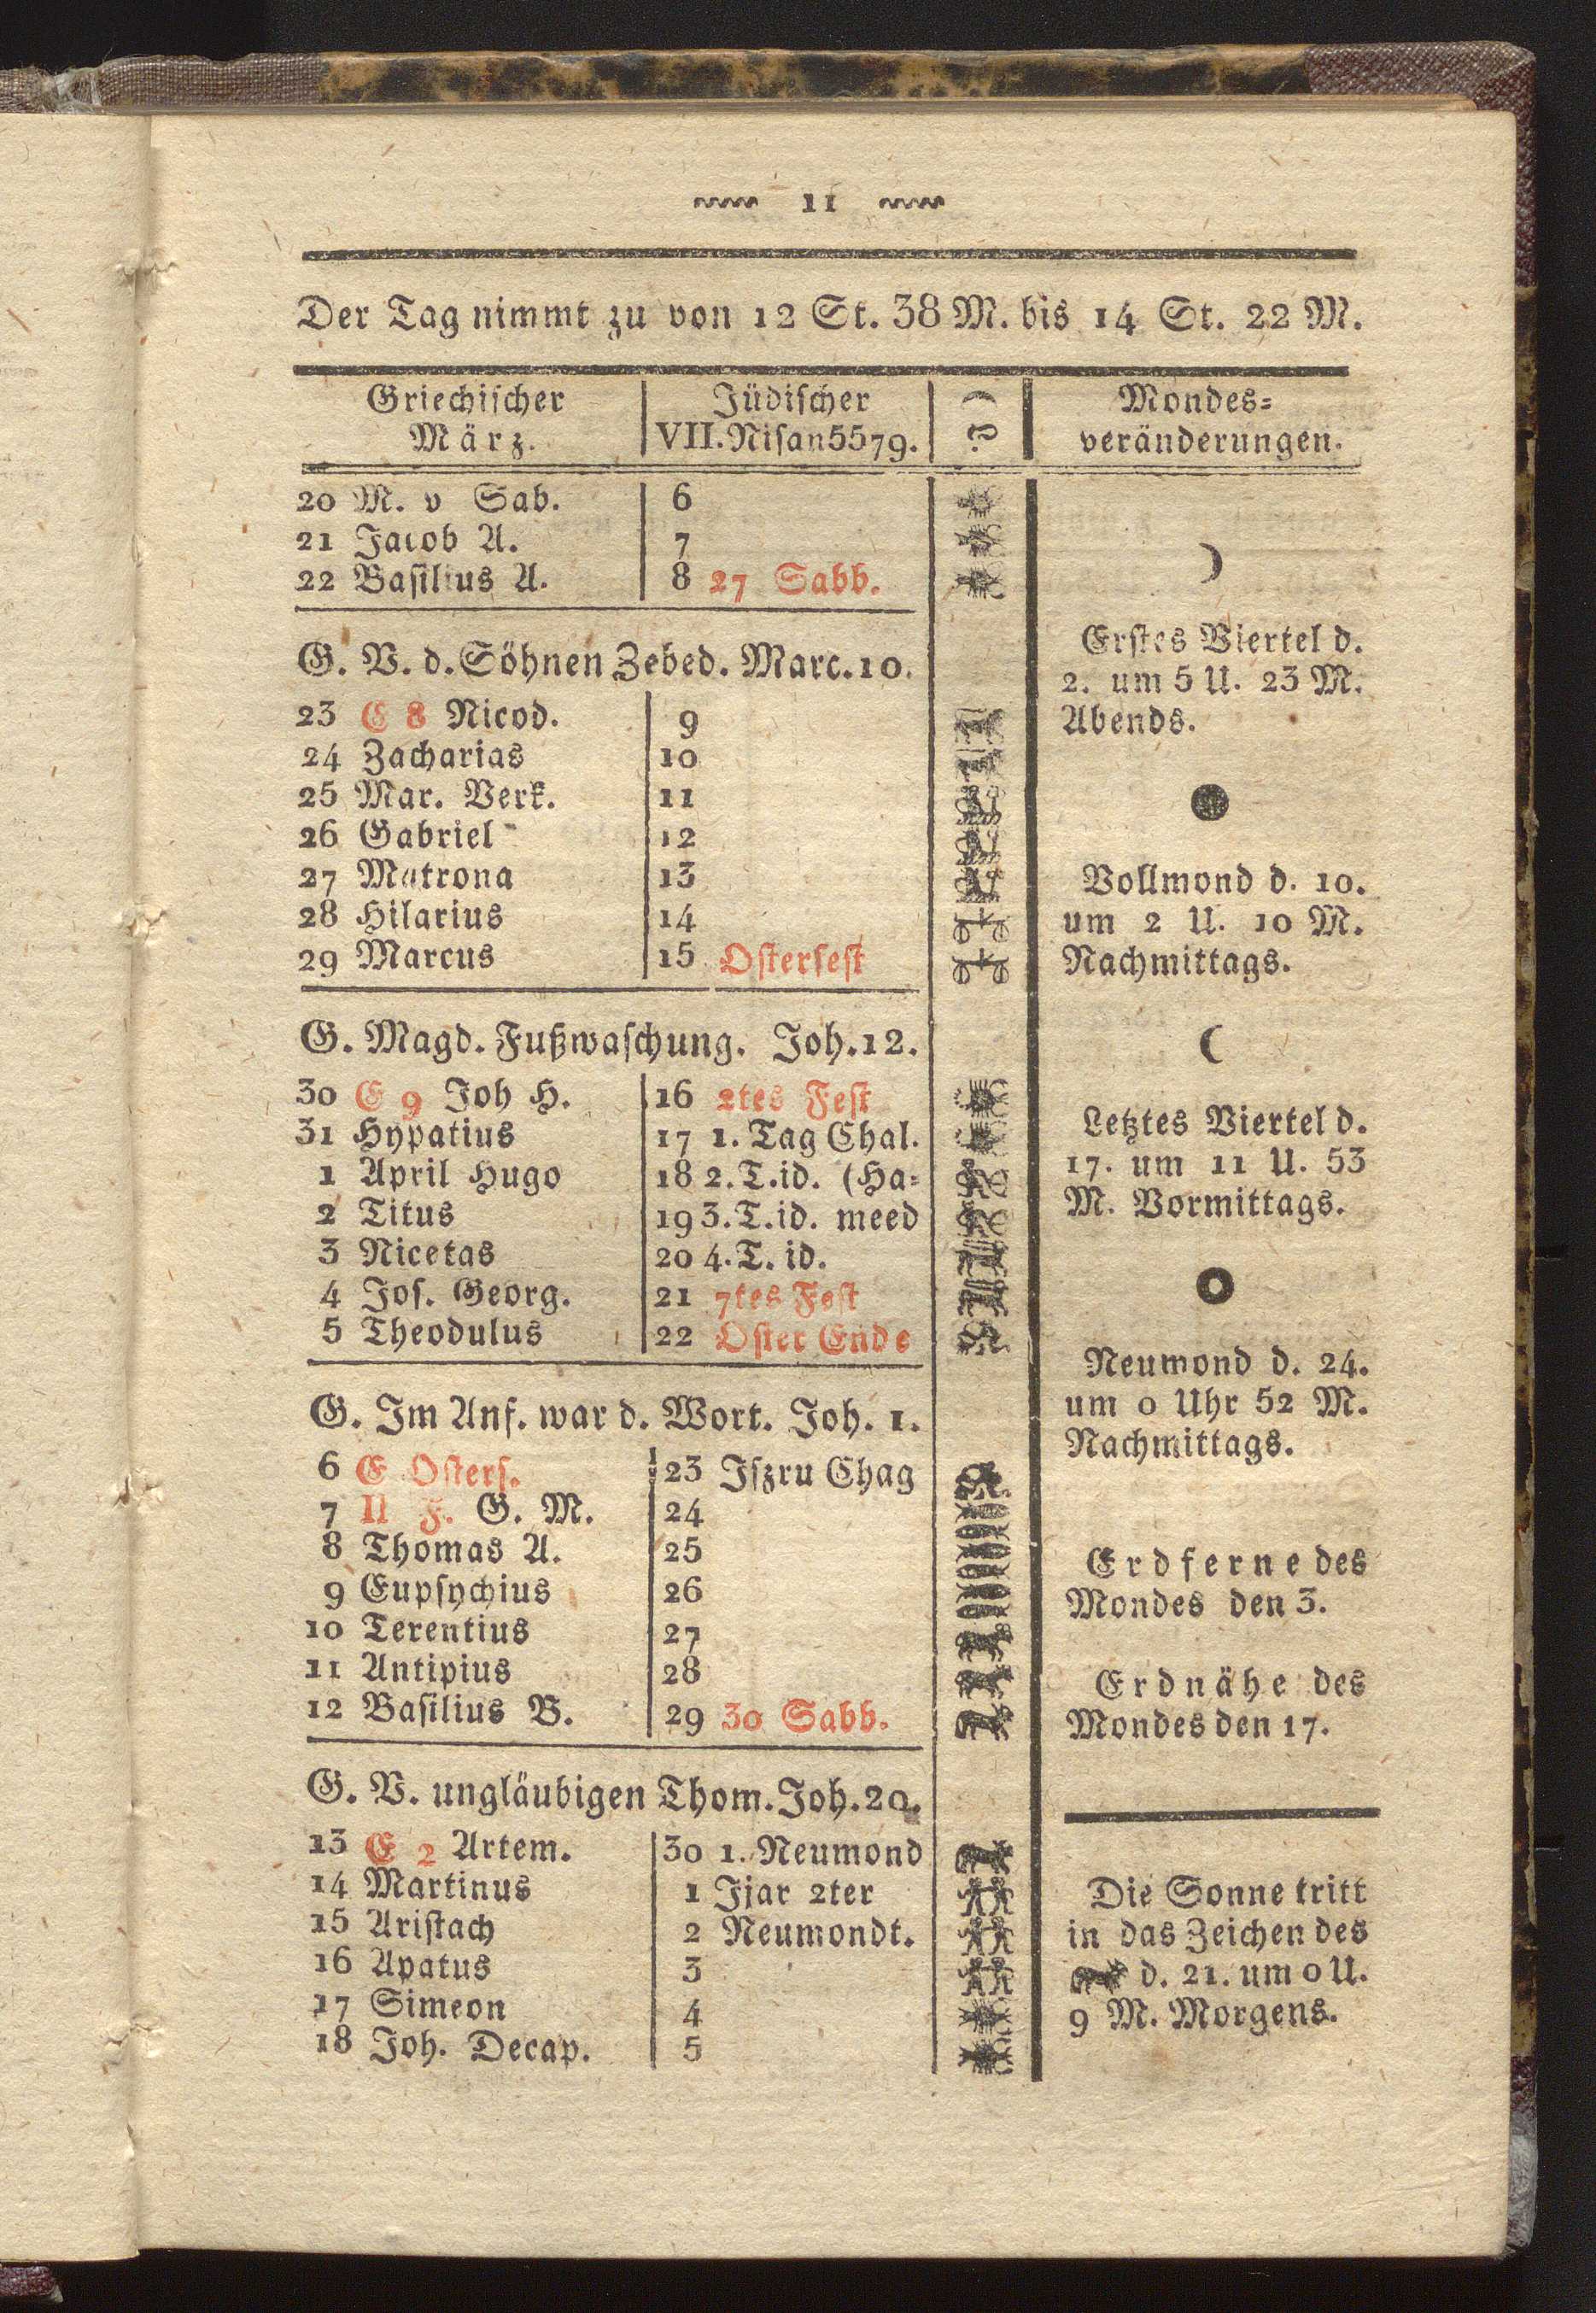 11
Der Tag nimmt zu von 12 St. 38 M. bis 14 St. 22 M.
Griechischer März.
Jüdischer VII. Nisan 5579.
Mondes=
veränderungen.
20 M. v Sab. 6
21 Jacob A. 7
22 Basilius A. 8 27 Sabb.
G. V. d. Söhnen Zebed. Marc. 10.
23 E 8 Nicod. 9
24 Zacharias 10
25 Mar. Verk. 11
26 Gabriel 12
27 Matrona 13
28 Hilarius 14
29 Marcus 15 Osterfest
G. Magd. Fußwaschung. Joh. 12.
30 E 9 Joh H. 16 2tes Fest
31 Hypatius 17 1. Tag Chal.
1 April Hugo 18 2. T. id. (Ha=
2 Titus 19 3. T. id. meed
3 Nicetas 20 4. T. id.
4 Jos. Georg. 21 7tes Fest
5 Theodulus 22 Oster Ende
G. Im Anf. war d. Wort. Joh. 1.
6 E Osters. 23 Iszru Chag
7 II F. G. M. 24
8 Thomas A. 25
9 Eupsychius 26
10 Terentius 27
11 Antipius 28
12 Basilius B. 29 30 Sabb.
G. V. ungläubigen Thom. Joh. 20.
13 E 2 Artem. 30 1. Neumond
14 Martinus 1 Ijar 2ter
15 Aristach 2 Neumondt.
16 Apatus 3
17 Simeon 4
18 Joh. Decap. 5
Erstes Viertel d.
2. um 5 U. 23 M.
Abends.
Vollmond d. 10.
um 2 U. 10 M.
Nachmittags.
Letztes Viertel d.
17. um 11 U. 53
M. Vormittags.
Neumond d. 24.
um 0 Uhr 52 M.
Nachmittags.
Erdferne des
Mondes den 3.
Erdnähe des
Mondes den 17.
Die Sonne tritt
in das Zeichen des
d. 21. um 0 U.
9 M. Morgens.